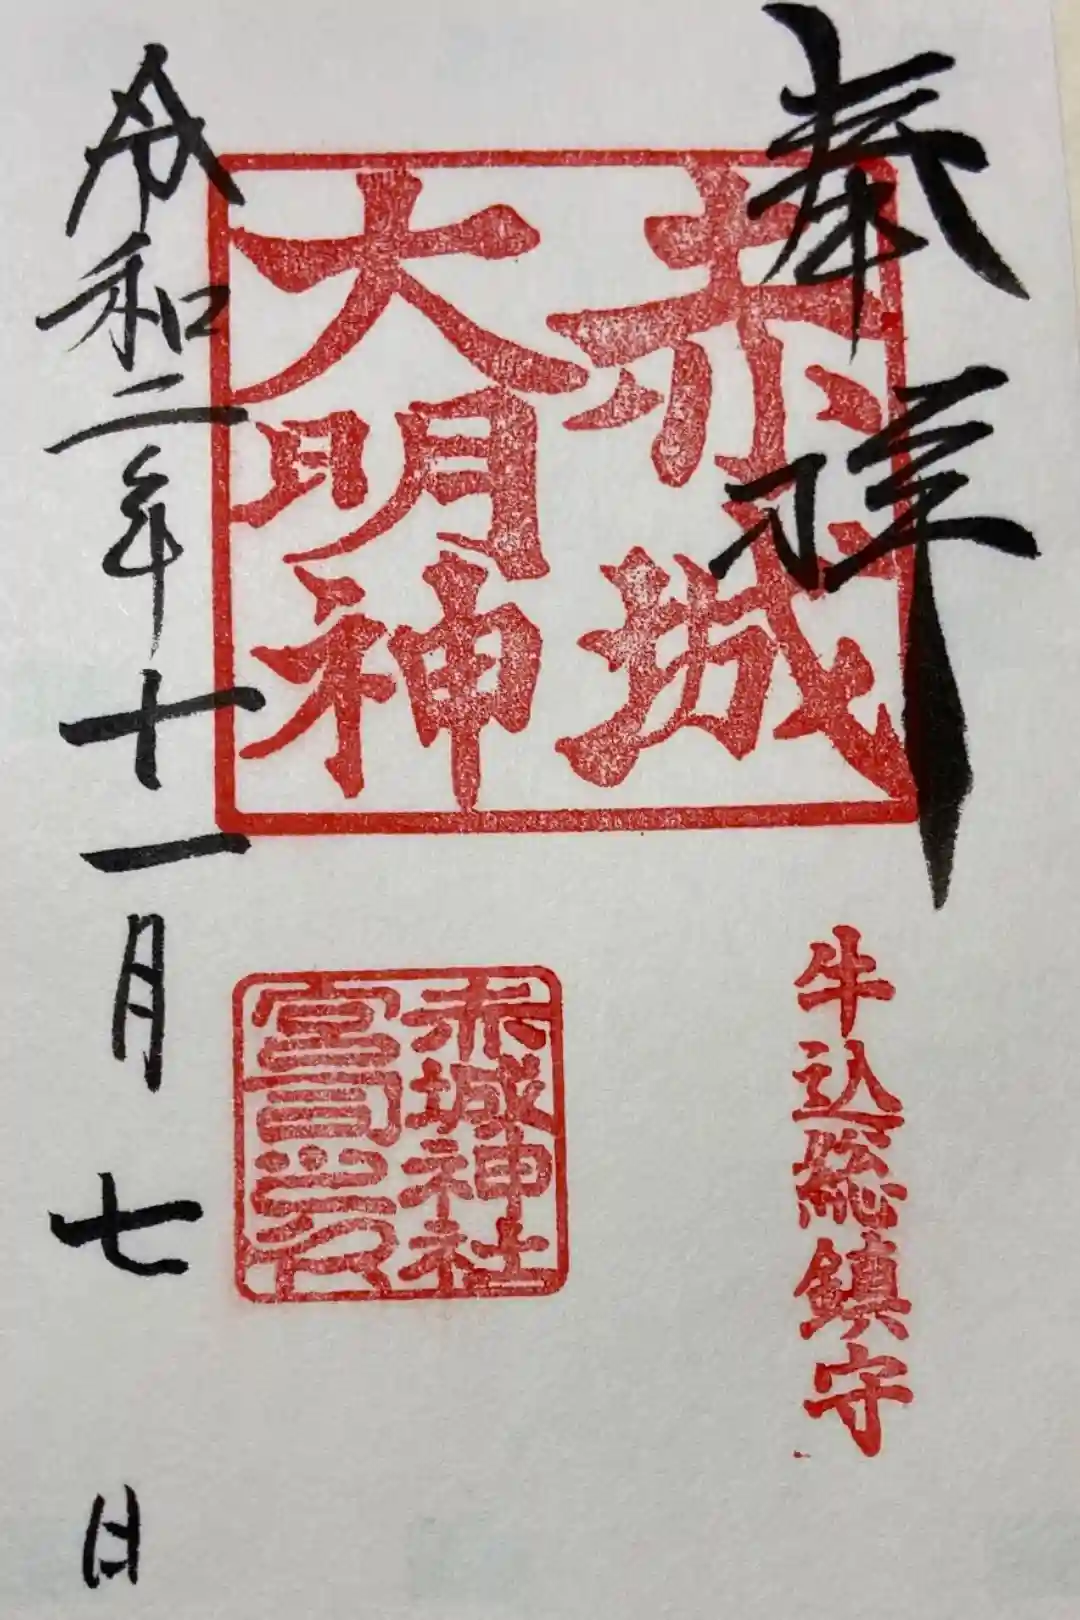 奉拝
牛込総鎮守
赤城
大明神
赤城神社
宮司之印
令和二年十一月七日